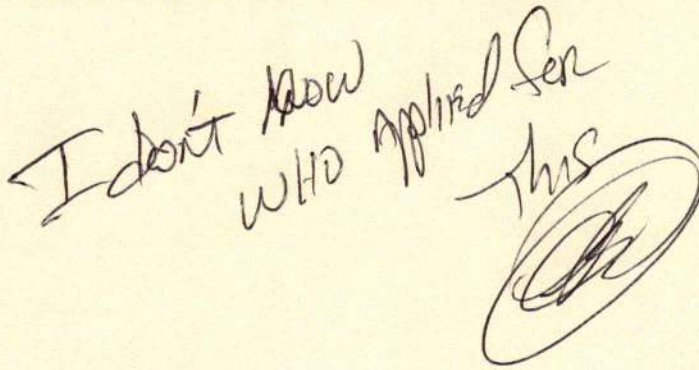 I don't know
WHO Applied for
This